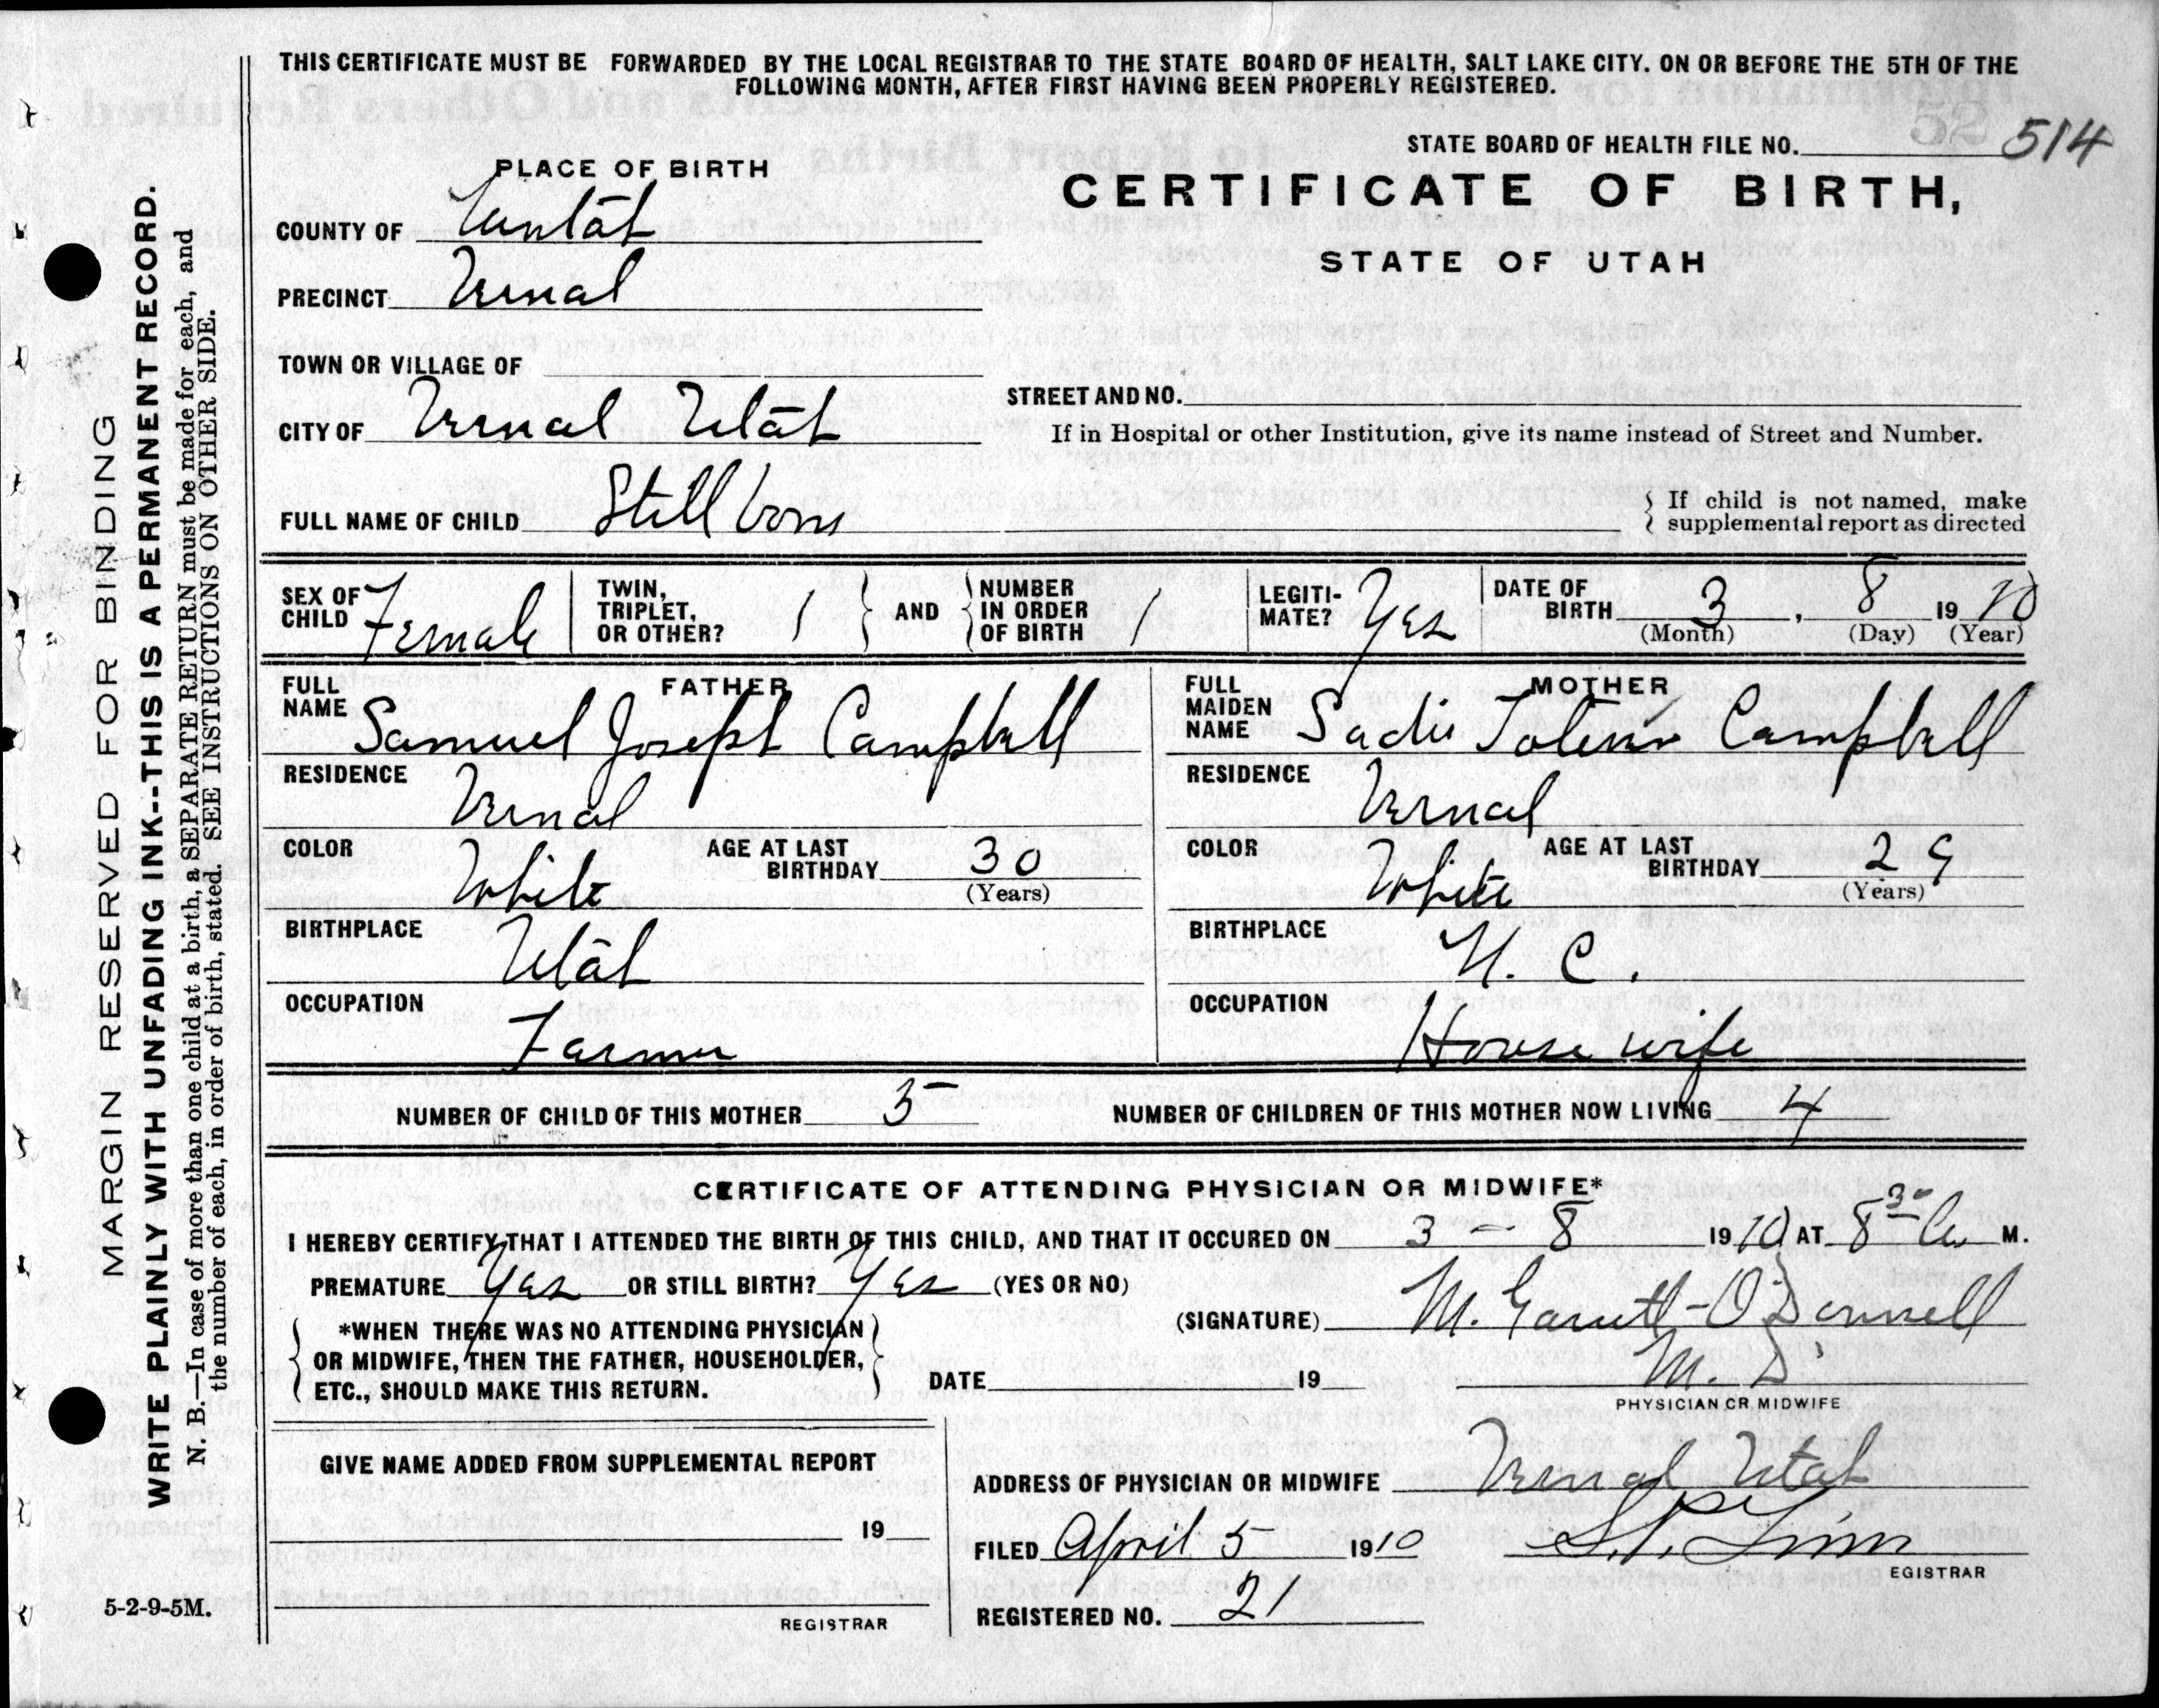 THIS CERTIFICATE MUST BE FORWARDED BY THE LOCAL REGISTRAR TO THE STATE BOARD OF HEALTH, SALT LAKE CITY. ON OR BEFORE THE 5TH OF THE
FOLLOWING MONTH, AFTER FIRST HAVING BEEN PROPERLY REGISTERED.
STATE BOARD OF HEALTH FILE NO. 514
52
CERTIFICATE OF BIRTH,
STATE OF UTAH
PLACE OF BIRTH
COUNTY OF Uintah
PRECINCT Vernal
TOWN OR VILLAGE OF
CITY OF Vernal Utah
STREET AND NO.
If in Hospital or other Institution, give its name instead of Street and Number.
FULL NAME OF CHILD Still born
{ If child is not named, make
{ supplemental report as directed
SEX OF CHILD Female
TWIN, TRIPLET, OR OTHER? 1 } AND { NUMBER IN ORDER OF BIRTH 1
LEGITI-MATE? Yes
DATE OF BIRTH 3, 8 1910
(Month) (Day) (Year)
FATHER
FULL NAME Samuel Joseph Campbell
RESIDENCE Vernal
COLOR White AGE AT LAST BIRTHDAY 30
(Years)
BIRTHPLACE Utah
OCCUPATION Farmer
MOTHER
FULL MAIDEN NAME Sadie Campbell
RESIDENCE Vernal
COLOR White AGE AT LAST BIRTHDAY 29
(Years)
BIRTHPLACE N. C.
OCCUPATION House wife
NUMBER OF CHILD OF THIS MOTHER 5 NUMBER OF CHILDREN OF THIS MOTHER NOW LIVING 4
CERTIFICATE OF ATTENDING PHYSICIAN OR MIDWIFE*
I HEREBY CERTIFY THAT I ATTENDED THE BIRTH OF THIS CHILD, AND THAT IT OCCURED ON 3 - 8 1910 AT 8 30 a M.
PREMATURE Yes OR STILL BIRTH? Yes (YES OR NO)
(SIGNATURE) M. Garrett-O'Donnell
M. D.
PHYSICIAN OR MIDWIFE
*WHEN THERE WAS NO ATTENDING PHYSICIAN
OR MIDWIFE, THEN THE FATHER, HOUSEHOLDER,
ETC., SHOULD MAKE THIS RETURN.
DATE 19
GIVE NAME ADDED FROM SUPPLEMENTAL REPORT
19
REGISTRAR
ADDRESS OF PHYSICIAN OR MIDWIFE Vernal Utah
FILED April 5 1910
EGISTRAR
REGISTERED NO. 21
5-2-9-5M.
MARGIN RESERVED FOR BINDING
WRITE PLAINLY WITH UNFADING INK--THIS IS A PERMANENT RECORD.
N. B.—In case of more than one child at a birth, a SEPARATE RETURN must be made for each, and
the number of each, in order of birth, stated. SEE INSTRUCTIONS ON OTHER SIDE.